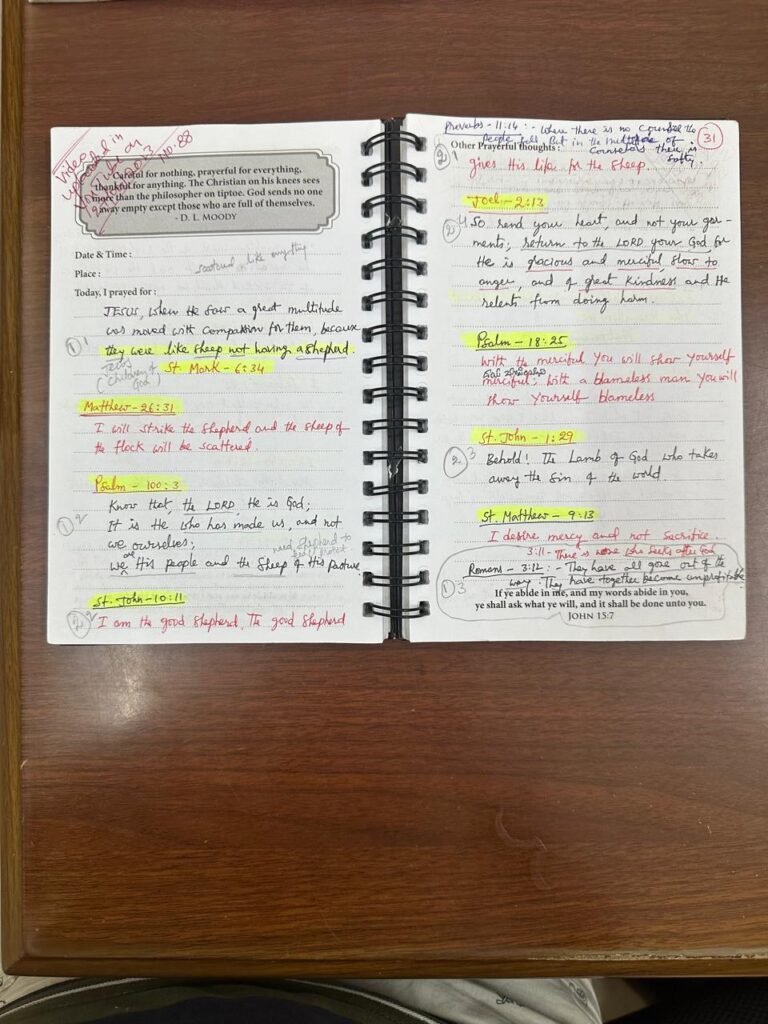 Videoed in
uploaded in
NO. 88
Careful for nothing, prayerful for everything,
thankful for anything. The Christian on his knees sees
more than the philosopher on tiptoe. God sends no one
away empty except those who are full of themselves.
- D. L. MOODY
Date & Time :
scattered like anything
Place :
Today, I prayed for :
JESUS, when He saw a great multitude
was moved with compassion for them, because
① 1
they were like sheep not having a shepherd.
Jesus
(Children of God)
St. Mark - 6:34
Matthew - 26:31
I will strike the Shepherd and the sheep of
the flock will be scattered.
Psalm - 100:3
Know that, the LORD, He is God;
① 2 It is He who has made us, and not
we ourselves;
need shepherd to
are
we His people and the Sheep of His Pasture
St. John - 10:11
② 2 I am the good shepherd, The good shepherd
Proverbs - 11:14 :- Where there is no Counsel the
people fall But in the multitude of
Counselors there is
Safety
31
Other Prayerful thoughts :
② 1 gives His life for the Sheep.
Joel - 2:13
② 4 So rend your heart, and not your gar-
ments; return to the LORD your God, for
He is gracious and merciful, slow to
anger, and of great kindness and He
relents from doing harm.
Psalm - 18:25
With the merciful You will show yourself
merciful; With a blameless man you will
show yourself blameless
St. John - 1:29
② 3 Behold! The Lamb of God who takes
away the Sin of the world.
St. Matthew - 9:13
I desire mercy and not sacrifice.
3:11 - There is none who seeks after God
Romans - 3:12 :- They have all gone out of the
① 3 way. They have together become unprofitable
If ye abide in me, and my words abide in you,
ye shall ask what ye will, and it shall be done unto you.
JOHN 15:7